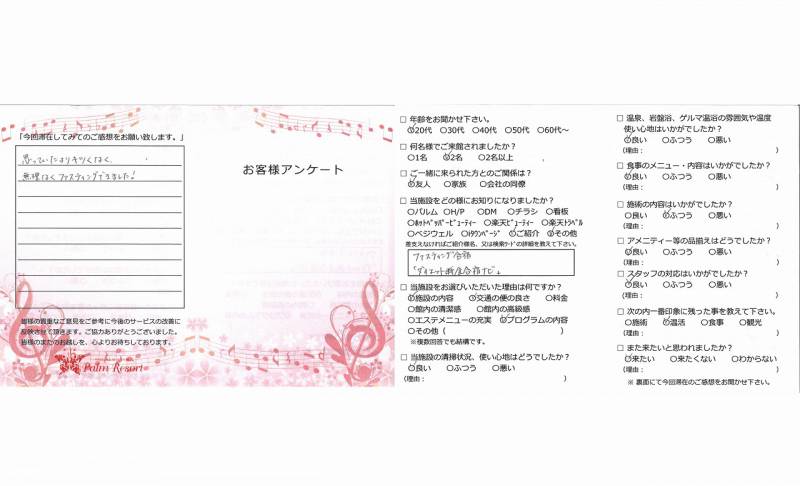 「今回滞在してみてのご感想をお願い致します。」
思っていたよりキツくなく、
無理なくファスティングできました!
皆様の貴重なご意見をご参考に今後のサービスの改善に
反映させて頂きます。ご協力ありがとうございました。
皆様のまたのお越しを、心よりお待ちしております。
Palm Resort
お客様アンケート
□ 年齢をお聞かせ下さい。
○20代 ○30代 ○40代 ○50代 ○60代～
□ 何名様でご来館されましたか？
○1名 ○2名 ○2名以上
□ ご一緒に来られた方とのご関係は？
○友人 ○家族 ○会社の同僚
□ 当施設をどの様にお知りになりましたか？
○パルム ○H/P ○DM ○チラシ ○看板
○ﾎｯﾄﾍﾟｯﾊﾟｰﾋﾞｭｰﾃｨｰ ○楽天ﾋﾞｭｰﾃｨｰ ○楽天ﾄﾗﾍﾞﾙ
○ベジウェル ○iﾀｳﾝﾍﾟｰｼﾞ ○ご紹介 ○その他
差支えなければご紹介様名、又は検索ﾜｰﾄﾞの詳細を教えて下さい。
ファスティング合宿
「ダイエット断食合宿ナビ」
□ 当施設をお選びいただいた理由は何ですか？
○施設の内容 ○交通の便の良さ ○料金
○館内の清潔感 ○館内の高級感
○エステメニューの充実 ○プログラムの内容
○その他（ ）
※複数回答でも結構です。
□ 当施設の清掃状況、使い心地はどうでしたか？
○良い ○ふつう ○悪い
(理由： )
□ 温泉、岩盤浴、ゲルマ温浴の雰囲気や温度
使い心地はいかがでしたか？
○良い ○ふつう ○悪い
(理由： )
□ 食事のメニュー・内容はいかがでしたか？
○良い ○ふつう ○悪い
(理由： )
□ 施術の内容はいかがでしたか？
○良い ○ふつう ○悪い
(理由： )
□ アメニティー等の品揃えはどうでしたか？
○良い ○ふつう ○悪い
(理由： )
□ スタッフの対応はいかがでしたか？
○良い ○ふつう ○悪い
(理由： )
□ 次の内一番印象に残った事を教えて下さい。
○施術 ○温活 ○食事 ○観光
□ また来たいと思われましたか？
○来たい ○来たくない ○わからない
(理由： )
※ 裏面にて今回滞在のご感想をお聞かせ下さい。